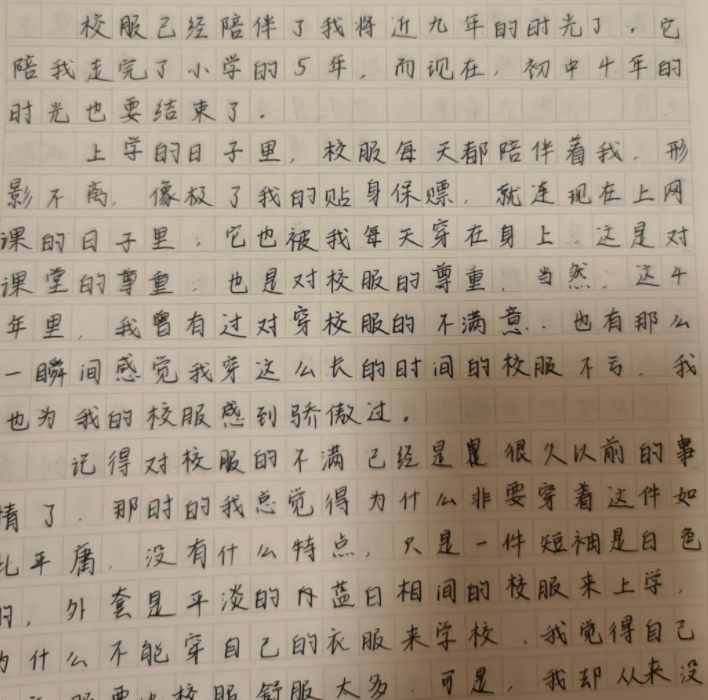 校服已经陪伴了我将近九年的时光了,它
陪我走完了小学的5年,而现在,初中4年的
时光也要结束了.
上学的日子里,校服每天都陪伴着我,形
影不离,像极了我的贴身保镖,就连现在上网
课的日子里,它也被我每天穿在身上,这是对
课堂的尊重,也是对校服的尊重,当然,这4
年里,我曾有过对穿校服的不满意.也有那么
一瞬间感觉我穿这么长的时间的校服不亏,我
也为我的校服感到骄傲过。
记得对校服的不满已经是是很久以前的事
情了.那时的我总觉得为什么非要穿着这件如
此平庸,没有什么特点,只是一件短袖是白色
的,外套是平淡的蓝白相间的校服来上学,
为什么不能穿自己的衣服来学校,我觉得自己
服要比校服舒服太多.可是,我却从来没